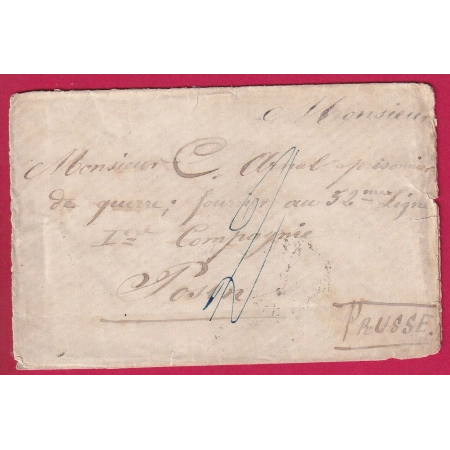 Monsieur
Monsieur C. Arnal prisonnier
de guerre; fourrier au 52me Ligne
1ere Compagnie
Posen
PRUSSE.